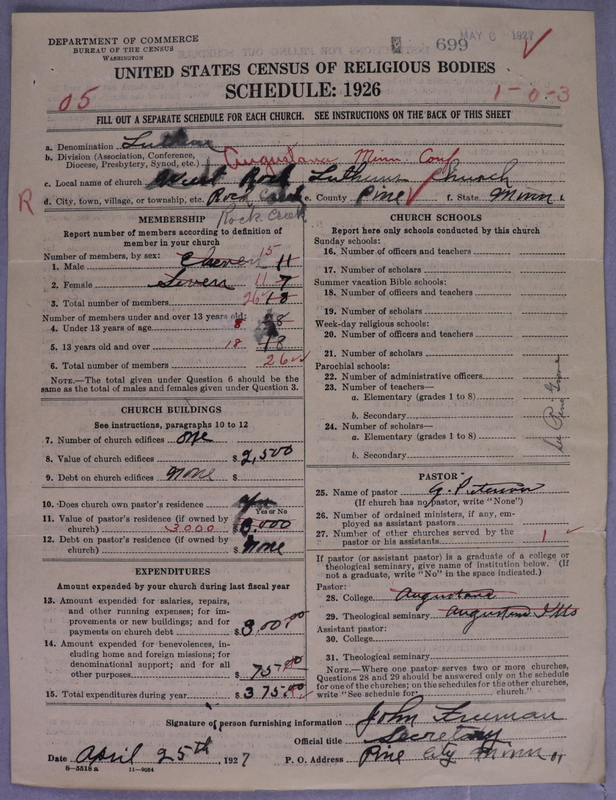 DEPARTMENT OF COMMERCE
BUREAU OF THE CENSUS
WASHINGTON
MAY 6 1927
699
UNITED STATES CENSUS OF RELIGIOUS BODIES
SCHEDULE: 1926
05
1-0-3
FILL OUT A SEPARATE SCHEDULE FOR EACH CHURCH. SEE INSTRUCTIONS ON THE BACK OF THIS SHEET
a. Denomination Lutheran
b. Division (Association, Conference, Diocese, Presbytery, Synod, etc.) Augustana Minn. Conf
c. Local name of church West Rock Lutheran Church
R
d. City, town, village, or township, etc. Rock Creek e. County Pine f. State Minn.
Rock Creek
MEMBERSHIP
Report number of members according to definition of
member in your church
Number of members, by sex:
1. Male Eleven 15 11
2. Female Seven 11 7
3. Total number of members 26 18
Number of members under and over 13 years old:
4. Under 13 years of age 8 8
5. 13 years old and over 18 18
6. Total number of members 26
NOTE.—The total given under Question 6 should be the
same as the total of males and females given under Question 3.
CHURCH BUILDINGS
See instructions, paragraphs 10 to 12
7. Number of church edifices one
8. Value of church edifices $2,500
9. Debt on church edifices none $
10. Does church own pastor's residence? Yes
Yes or No
11. Value of pastor's residence (if owned by
church) 3000 $3,000
12. Debt on pastor's residence (if owned by
church) $ none
EXPENDITURES
Amount expended by your church during last fiscal year
13. Amount expended for salaries, repairs,
and other running expenses; for im-
provements or new buildings; and for
payments on church debt $300.00
14. Amount expended for benevolences, in-
cluding home and foreign missions; for
denominational support; and for all
other purposes $75.00
15. Total expenditures during year $375.00
CHURCH SCHOOLS
Report here only schools conducted by this church
Sunday schools:
16. Number of officers and teachers
17. Number of scholars
Summer vacation Bible schools:
18. Number of officers and teachers
19. Number of scholars
Week-day religious schools:
20. Number of officers and teachers
21. Number of scholars
Parochial schools:
22. Number of administrative officers
23. Number of teachers—
a. Elementary (grades 1 to 8)
b. Secondary
24. Number of scholars—
a. Elementary (grades 1 to 8)
b. Secondary
PASTOR
25. Name of pastor G. Peterson
(If church has no pastor, write "None")
26. Number of ordained ministers, if any, em-
ployed as assistant pastors
27. Number of other churches served by the
pastor or his assistants 1
If pastor (or assistant pastor) is a graduate of a college or
theological seminary, give name of institution below. (If
not a graduate, write "No" in the space indicated.)
Pastor:
28. College Augustana
29. Theological seminary Augustana Ills
Assistant pastor:
30. College
31. Theological seminary
NOTE.—Where one pastor serves two or more churches,
Questions 28 and 29 should be answered only on the schedule
for one of the churches; on the schedules for the other churches,
write "See schedule for church."
Signature of person furnishing information John Freeman
Official title Secretary
Date April 25th, 1927 P. O. Address Pine City Minn
6—5518 a 11—9084